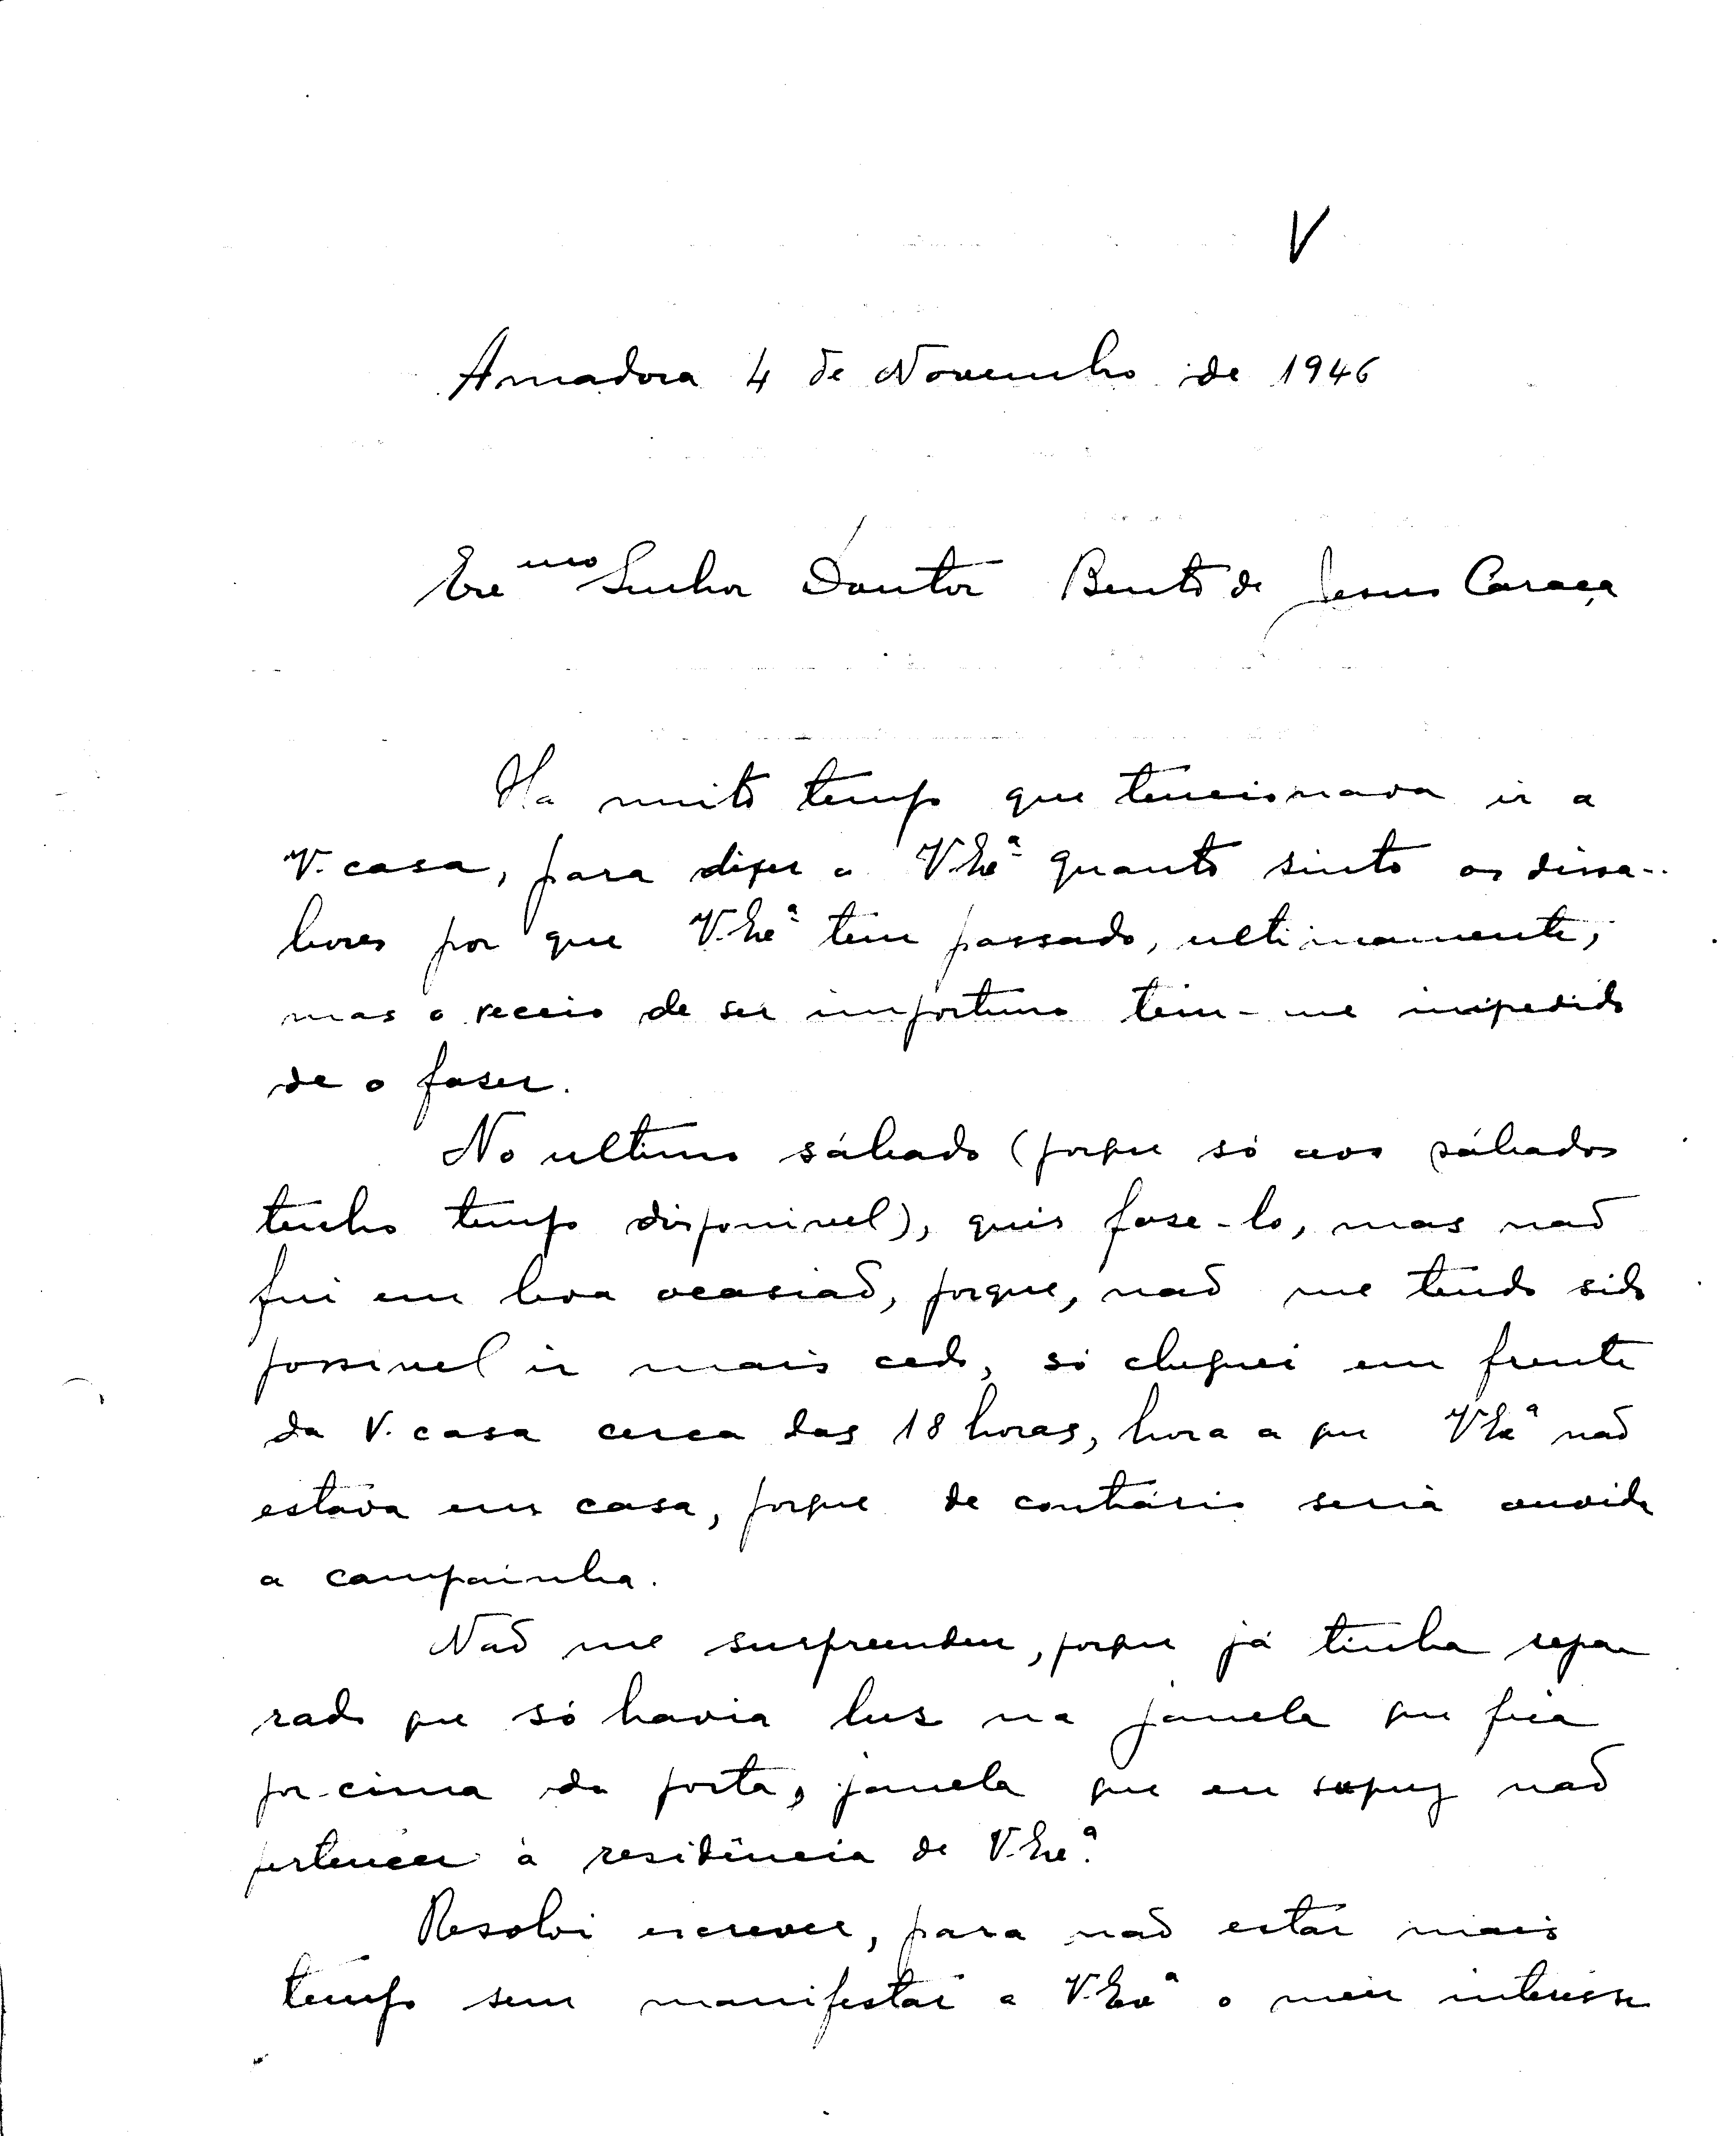 V
Amadora 4 de Novembro de 1946
Exmo Senhor Doutor Bento de Jesus Caraça
Ha muito tempo que tencionava ir a
V. casa, para dizer a V. Exª quanto sinto os dissa-
bores por que V. Exª tem passado, ultimamente,
mas o receio de ser importuno tem-me impedido
de o faser.
No ultimo sábado (porque só aos sábados
tenho tempo disponivel), quis fase-lo, mas naõ
fui em boa ocasiaõ, porque, naõ me tendo sido
possivel ir mais cedo, só cheguei em frente
da V. casa cerca das 18 horas, hora a que V Exª naõ
estava em casa, porque de contrário seria ouvida
a campainha.
Naõ me surpreendeu, porque já tinha repa
rado que só havia lus na janela que fica
por cima da porta, janela que eu supuz naõ
pertencer à residência de V. Exª.
Resolvi escrever, para naõ estar mais
tempo sem manifestar a V. Exª o meu interesse